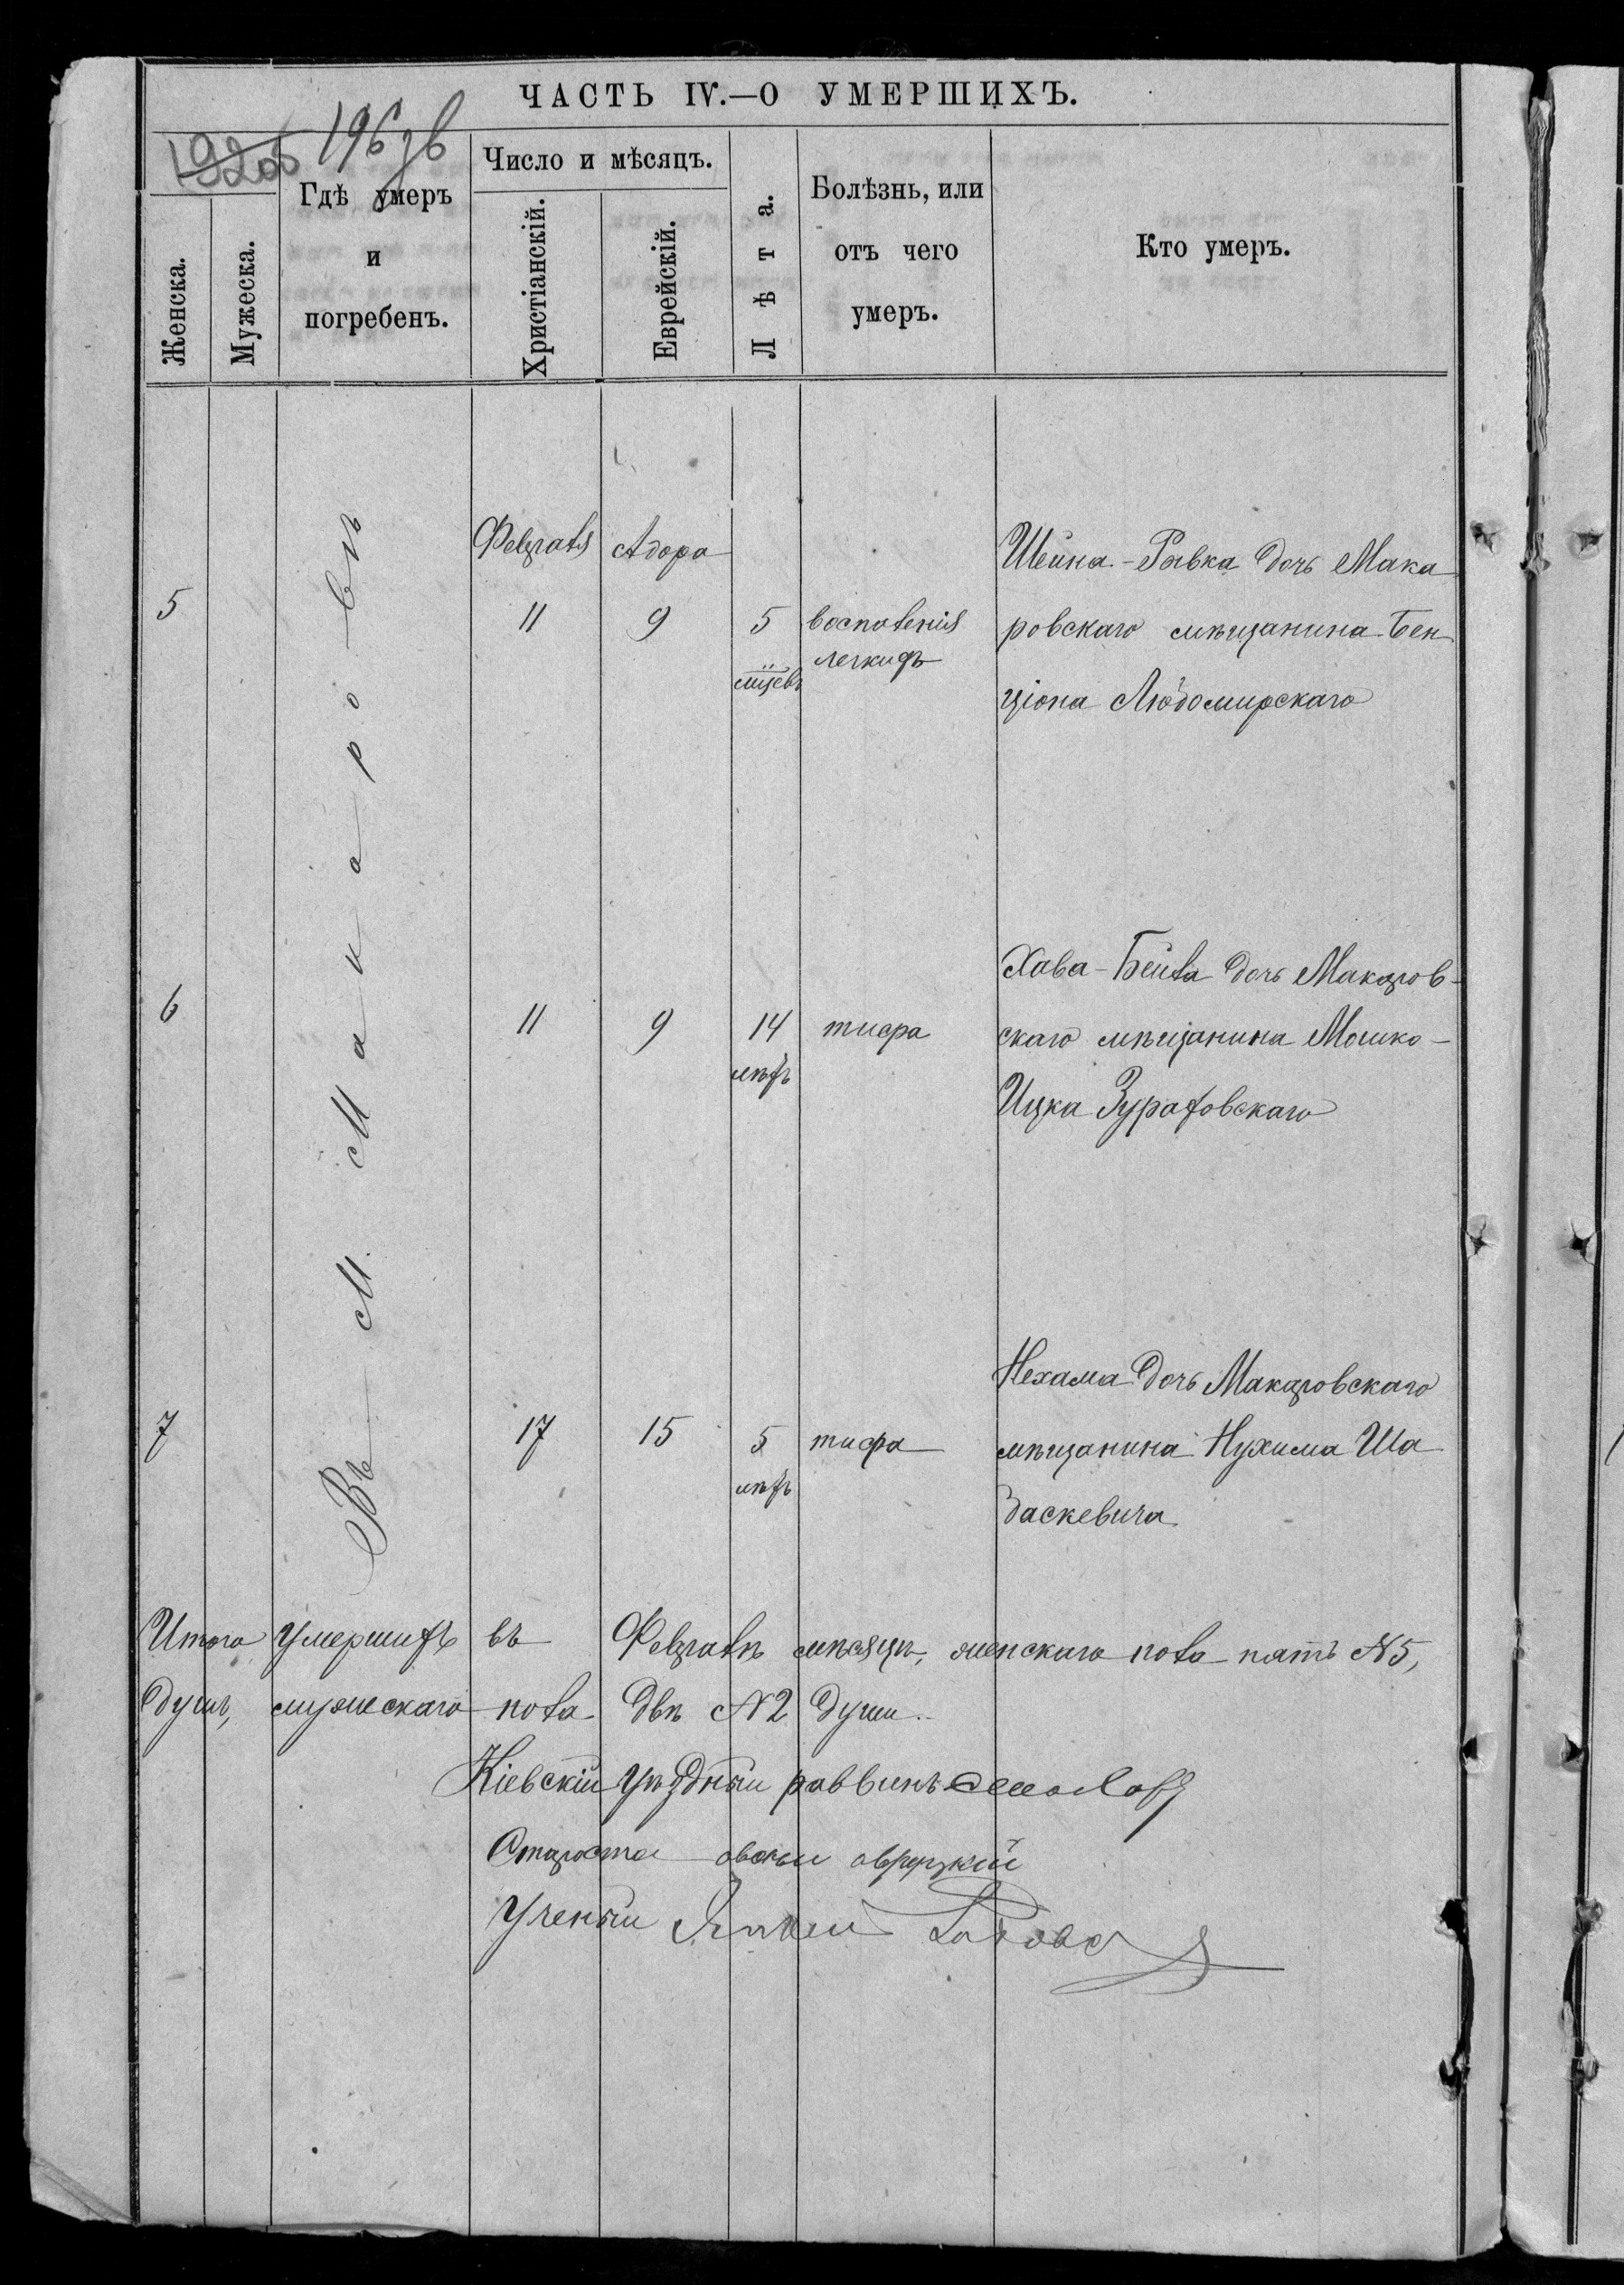 ЧАСТЬ IV.—О УМЕРШИХЪ.
192об 196 зв
Женска.
Мужеска.
Гдѣ умеръ
и
погребенъ.
Число и мѣсяцъ.
Христіанскій.
Еврейскій.
Лѣта.
Болѣзнь, или
отъ чего
умеръ.
Кто умеръ.
Въ М. Макаровѣ
Февраля Адара
5 11 9 5 воспаленія
мѣсяцевъ легкихъ
Шейна-Рывка дочь Мака
ровскаго мѣщанина Бен
ціона Людомирскаго
Хава-Бейла дочь Макаров-
6 11 9 14 тифа скаго мѣщанина Мошко-
лѣтъ Ицка Зуратовскаго
Нехама дочь Макаровскаго
7 17 15 5 тифа мѣщанина Нухима Ша
лѣтъ даскевича
Итого умершихъ въ Февралѣ мѣсяцѣ, женскаго пола пять №5,
душъ, мужескаго пола двѣ №2 души.
Кіевскій уѣздный раввинъ
Староста овруцкій
Ученый